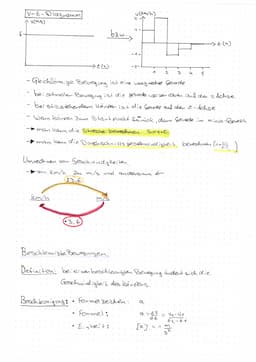 v-t-Diagramm
v(m/s)
v(km/h)
bzw.
t(s)
t(s)
1 2 3 4 5
- Gleichförmige Bewegung ist eine waagrechte Gerade
- bei schneller Bewegung ist die Gerade weiter oben auf der v-Achse
- bei stillstehendem Körper ist die Gerade auf der t-Achse
- Wenn Körper zum Startpunkt zurück, dann Gerade im minus-Bereich
→ man kann die Strecke berechnen
→ man kann die Durchschnittsgeschwindigkeit berechnen
Umrechnen von Geschwindigkeiten
→ von km/h zu m/s und andersrum
:3.6
km/h m/s
•3.6
Beschleunigte Bewegungen:
Definition: bei einer beschleunigten Bewegung ändert sich die
Geschwindigkeit des Körpers.
Beschleunigung: • Formelzeichen: a
• Formel:
• Einheit: [a] = 1 m/s²